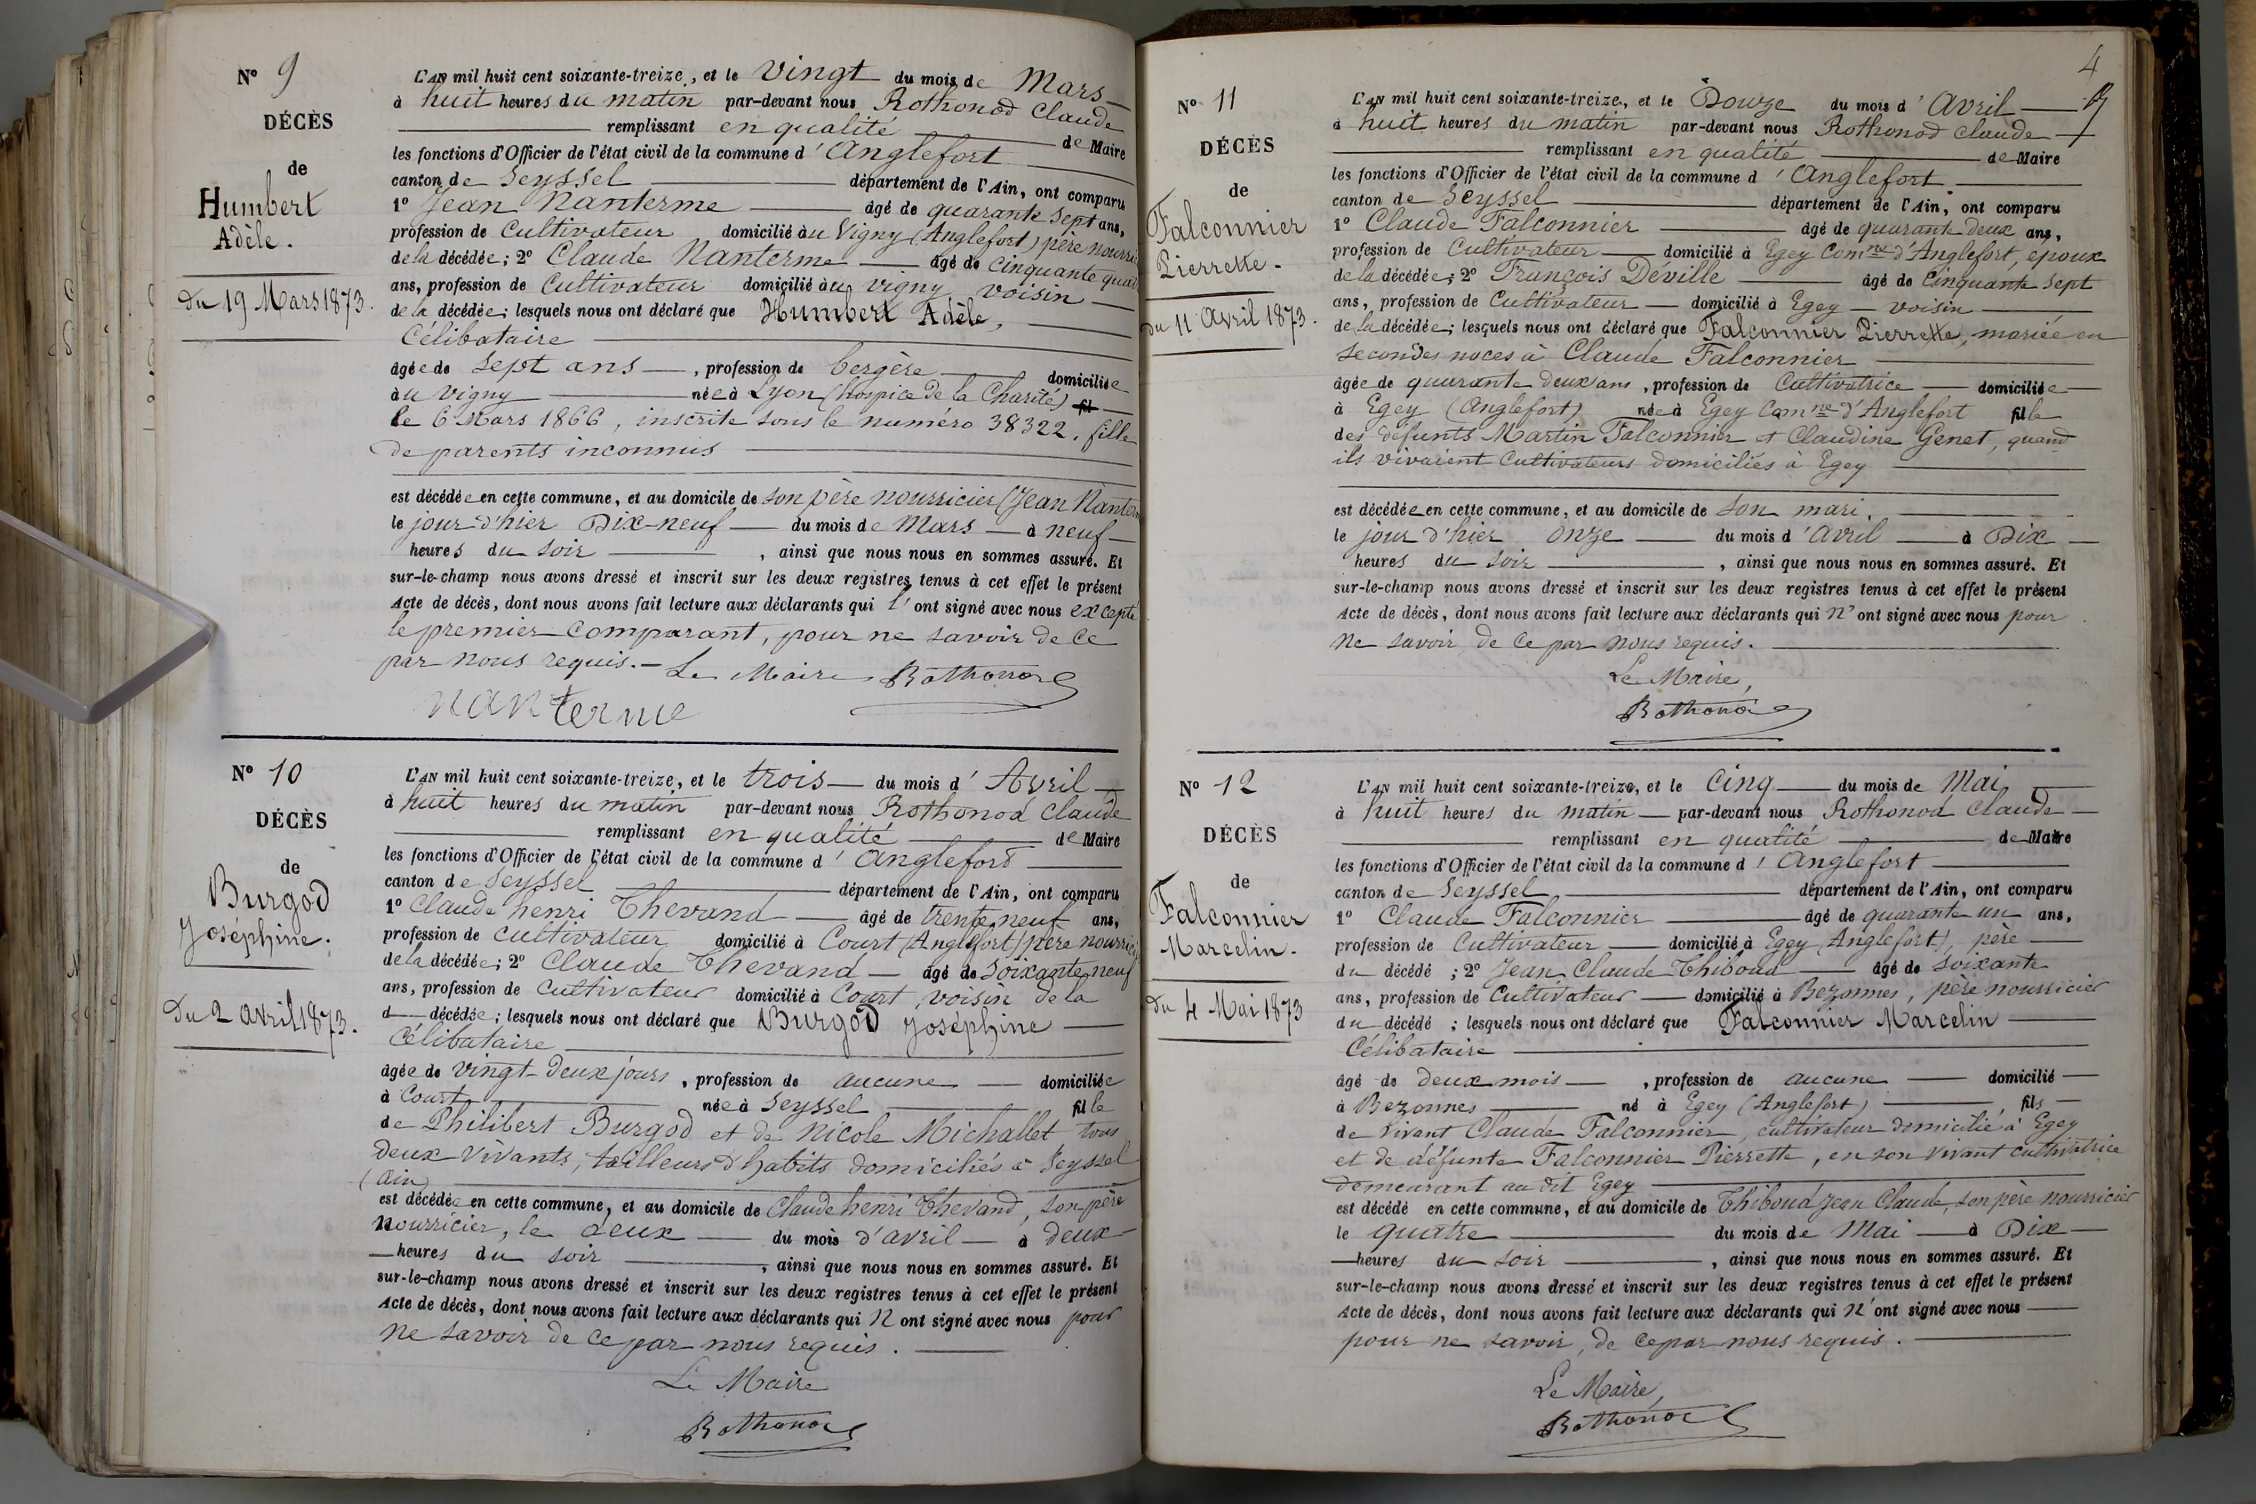 N° 9
DÉCÈS
de
Humbert
Adèle.
du 19 Mars 1873.
L'AN mil huit cent soixante-treize, et le Vingt du mois de Mars
à huit heures du matin par-devant nous Rothonod Claude
remplissant en qualité de Maire
les fonctions d'Officier de l'état civil de la commune d'Anglefort
canton de Seyssel département de l'Ain, ont comparu
1° Jean Nanterme âgé de quarante sept ans,
profession de Cultivateur domicilié àu Vigny (Anglefort) père nourri
de la décédée; 2° Claude Nanterme âgé de Cinquante quat
ans, profession de Cultivateur domicilié àu Vigny voisin
de la décédée; lesquels nous ont déclaré que Humbert Adèle,
Célibataire
âgée de sept ans, profession de bergère domiciliée
àu Vigny née à Lyon (hospice de la Charité) fil
le 6 Mars 1866, inscrite sous le numéro 38322, fille
de parents inconnus
est décédée en cette commune, et au domicile de son père nourricier (Jean Nanter
le jour d'hier Dix-neuf du mois de Mars à neuf
heures du soir, ainsi que nous nous en sommes assuré. Et
sur-le-champ nous avons dressé et inscrit sur les deux registres tenus à cet effet le présent
Acte de décès, dont nous avons fait lecture aux déclarants qui l'ont signé avec nous excepté
le premier comparant, pour ne savoir de ce
par nous requis.- Le Maire Rothonod
nanterme
N° 10
DÉCÈS
de
Burgod
Joséphine.
Du 2 avril 1873.
L'AN mil huit cent soixante-treize, et le trois du mois d'Avril
à huit heures du matin par-devant nous Rothonod Claude
remplissant en qualité de Maire
les fonctions d'Officier de l'état civil de la commune d'Anglefort
canton de Seyssel département de l'Ain, ont comparu
1° Claude henri Thevand âgé de trente neuf ans,
profession de cultivateur domicilié à Court (Anglefort) père nourrici
de la décédée; 2° Claude Thevand âgé de soixante neuf
ans, profession de Cultivateur domicilié à Court, voisin de la
d décédée; lesquels nous ont déclaré que Burgod Joséphine
Célibataire
âgée de vingt-deux jours, profession de aucune domiciliée
à Court née à Seyssel fille
de Philibert Burgod et de Nicole Michallet tous
deux vivants, tailleurs d'habits domiciliés à Seyssel
(Ain)
est décédée en cette commune, et au domicile de Claude henri Thevand, son père
nourricier, le deux du mois d'avril à deux
heures du soir, ainsi que nous nous en sommes assuré. Et
sur-le-champ nous avons dressé et inscrit sur les deux registres tenus à cet effet le présent
Acte de décès, dont nous avons fait lecture aux déclarants qui n'ont signé avec nous pour
ne savoir de ce par nous requis.
Le Maire
Rothonod
4
N° 11
DÉCÈS
de
Falconnier
Pierrette.
du 11 Avril 1873.
L'AN mil huit cent soixante-treize, et le Douze du mois d'Avril
à huit heures du matin par-devant nous Rothonod Claude
remplissant en qualité de Maire
les fonctions d'Officier de l'état civil de la commune d'Anglefort.
canton de Seyssel département de l'Ain, ont comparu
1° Claude Falconnier âgé de quarante deux ans,
profession de Cultivateur domicilié à Egey Comne d'Anglefort, époux
de la décédée; 2° François Deville âgé de Cinquante sept
ans, profession de Cultivateur domicilié à Egey voisin
de la décédée; lesquels nous ont déclaré que Falconnier Pierrette, mariée en
secondes noces à Claude Falconnier
âgée de quarante deux ans, profession de Cultivatrice domiciliée
à Egey (Anglefort) née à Egey Comne d'Anglefort fille
des défunts Martin Falconnier et Claudine Genet, quand
ils vivaient Cultivateurs domiciliés à Egey
est décédée en cette commune, et au domicile de son mari.
le jour d'hier onze du mois d'Avril à Dix
heures du soir, ainsi que nous nous en sommes assuré. Et
sur-le-champ nous avons dressé et inscrit sur les deux registres tenus à cet effet le présent
Acte de décès, dont nous avons fait lecture aux déclarants qui n'ont signé avec nous pour
ne savoir de ce par nous requis.
Le Maire,
Rothonod
N° 12
DÉCÈS
de
Falconnier
Marcelin.
du 4 Mai 1873
L'AN mil huit cent soixante-treize, et le Cinq du mois de Mai
à huit heures du matin par-devant nous Rothonod Claude
remplissant en qualité de Maire
les fonctions d'Officier de l'état civil de la commune d'Anglefort
canton de Seyssel département de l'Ain, ont comparu
1° Claude Falconnier âgé de quarante un ans,
profession de Cultivateur domicilié à Egey (Anglefort), père
du décédé; 2° Jean Claude Thiboud âgé de soixante
ans, profession de Cultivateur domicilié à Bezonnes, père nourricier
du décédé; lesquels nous ont déclaré que Falconnier Marcelin
Célibataire
âgé de deux mois, profession de aucune domicilié
à Bezonnes né à Egey (Anglefort), fils
de vivant Claude Falconnier, cultivateur domicilié à Egey
et de défunte Falconnier Pierrette, en son vivant cultivatrice
demeurant au dit Egey
est décédé en cette commune, et au domicile de Thiboud Jean Claude, son père nourricier
le quatre du mois de Mai à Dix
heures du soir, ainsi que nous nous en sommes assuré. Et
sur-le-champ nous avons dressé et inscrit sur les deux registres tenus à cet effet le présent
Acte de décès, dont nous avons fait lecture aux déclarants qui n'ont signé avec nous
pour ne savoir, de ce par nous requis.
Le Maire,
Rothonod